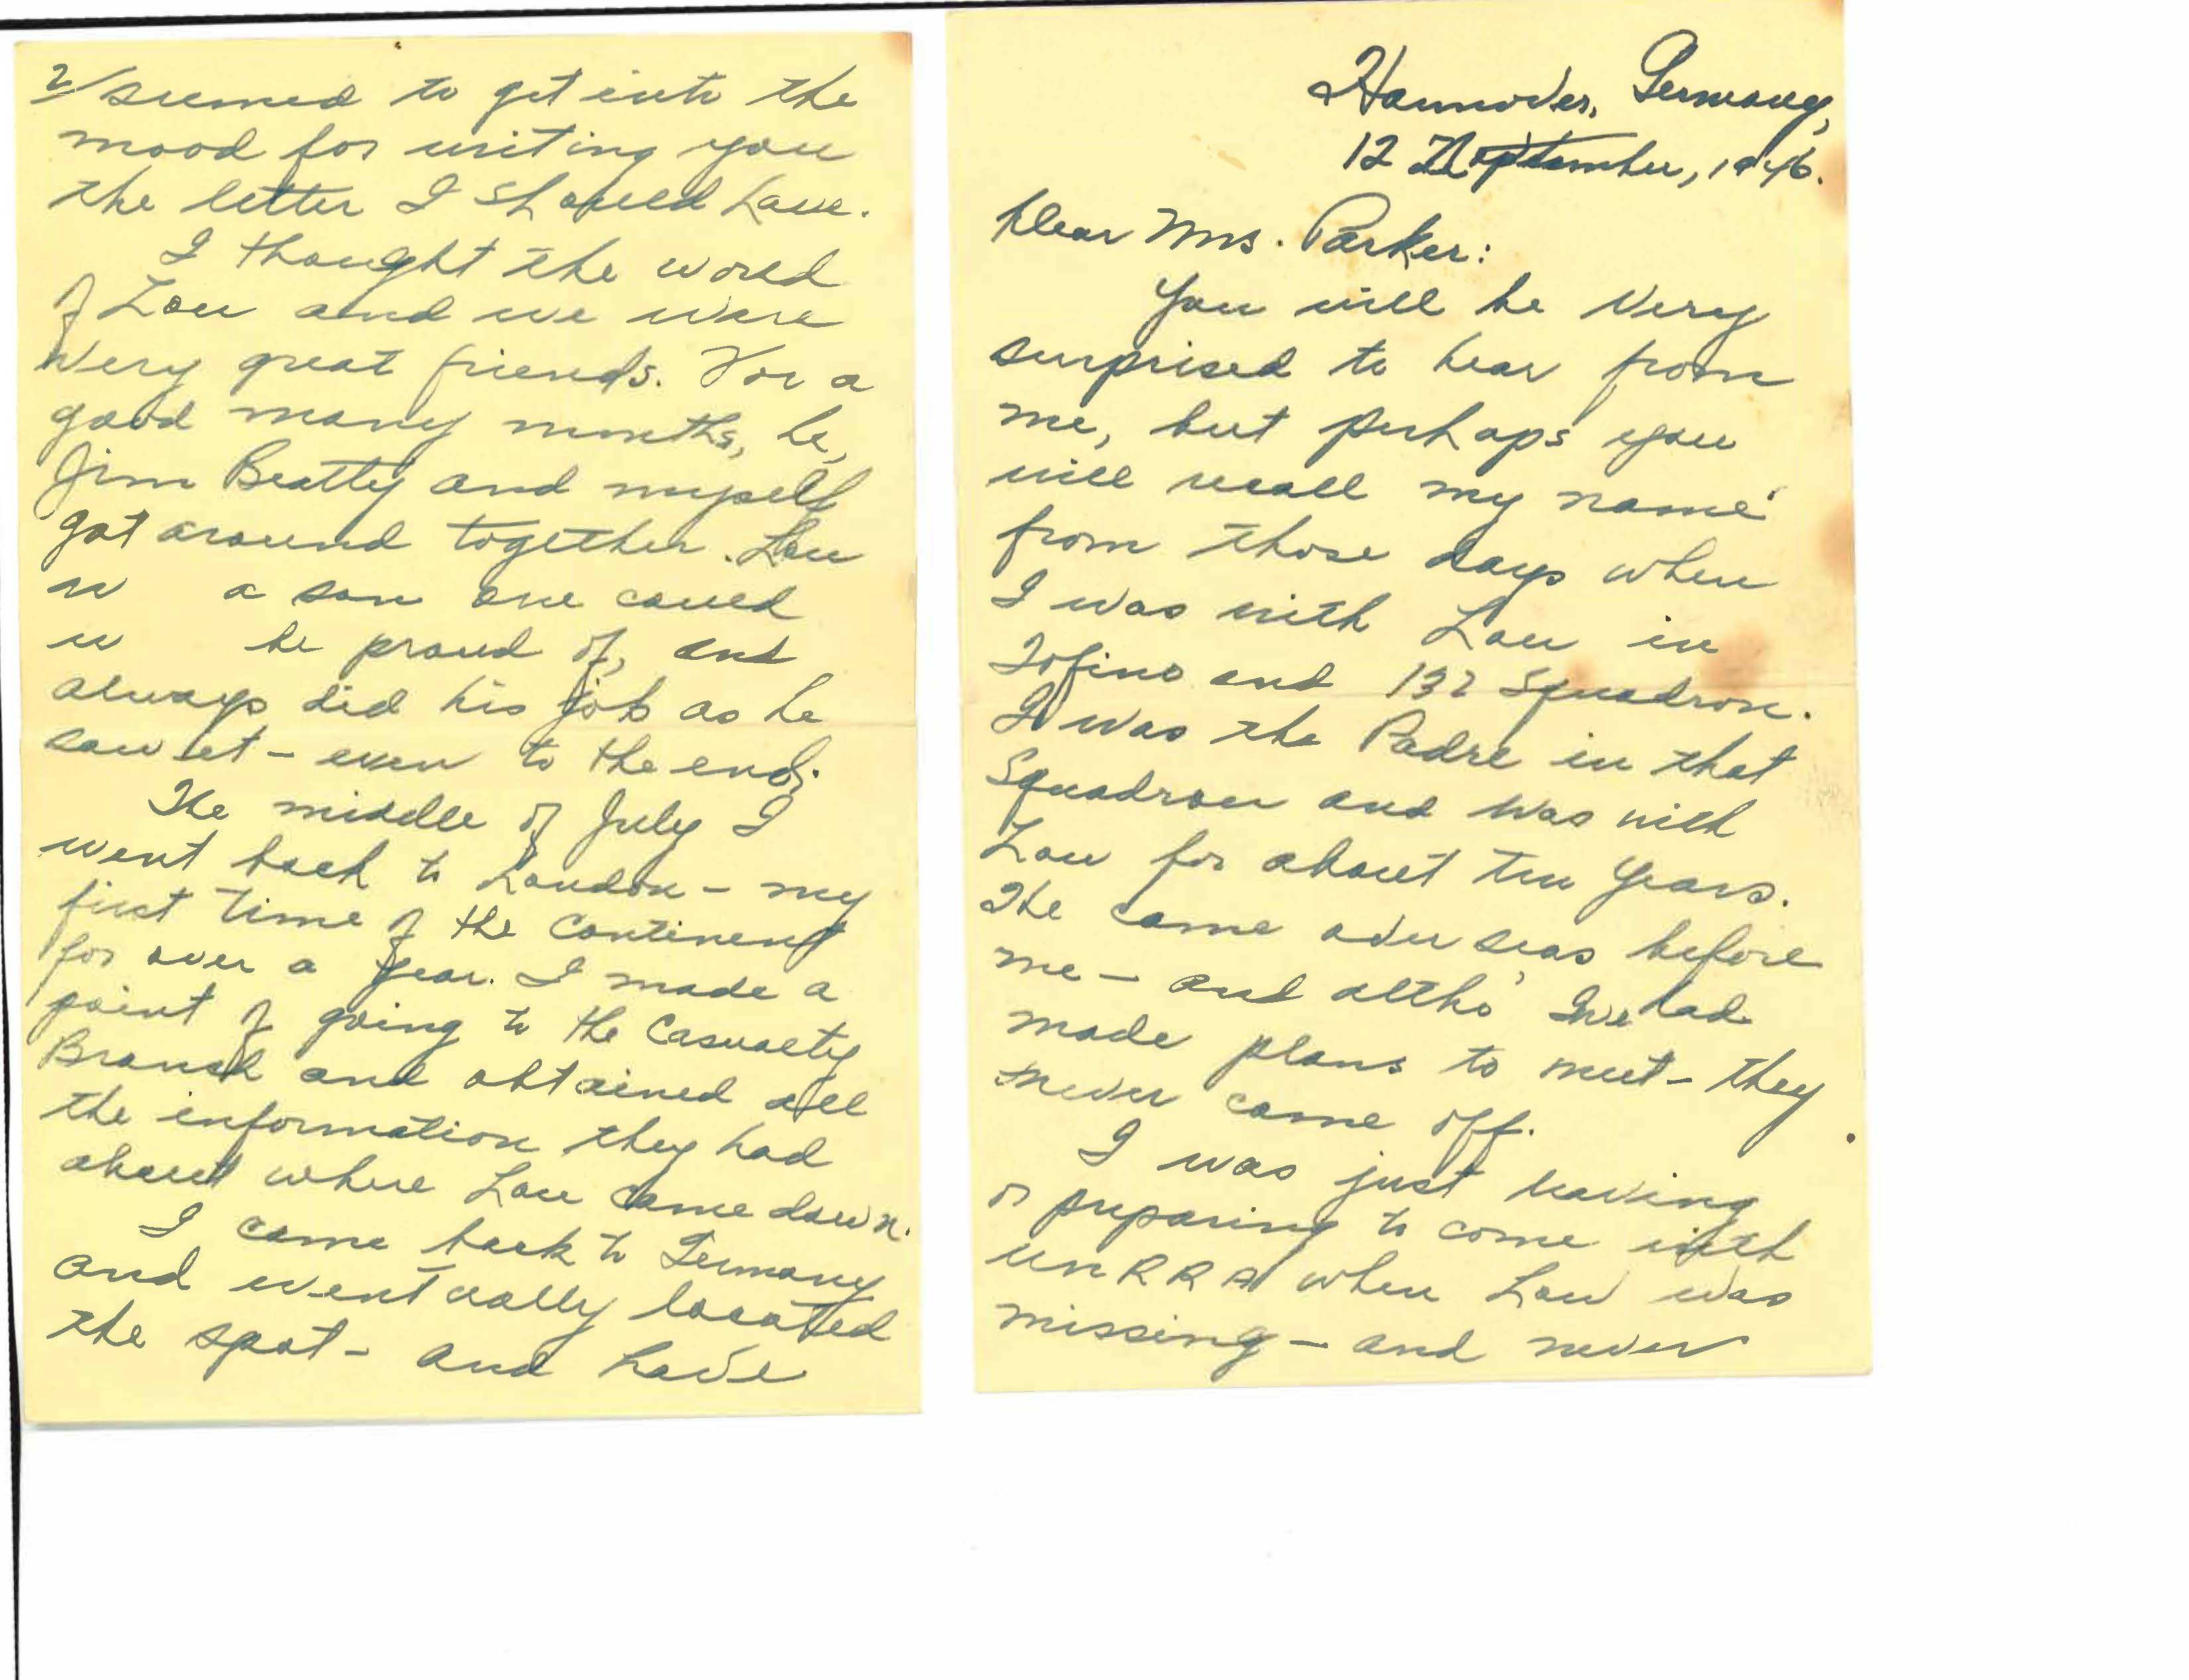 Hannover, Germany,
12 September, 1946.
Dear Mrs. Parker:
You will be very
surprised to hear from
me, but perhaps you
will recall my name
from those days when
I was with Lou in
Tofino and 132 Squadron.
I was the Padre in that
Squadron and was with
Lou for about two years.
He came overseas before
me - and altho' we had
made plans to meet - they
never came off.
I was just leaving
or preparing to come with
UNRRA when Lou was
missing - and never
2/ seemed to get into the
mood for writing you
the letter I should have.
I thought the world
of Lou and we were
very great friends. For a
good many months, he,
Jim Beatty and myself
got around together. Lou
a son one could
be proud of, and
always did his job as he
saw it - even to the end.
The middle of July I
went back to London - my
first time of the Continent
for over a year. I made a
point of going to the Casualty
Branch and obtained all
the information they had
about where Lou came down.
I came back to Germany
and eventually located
the spot - and have